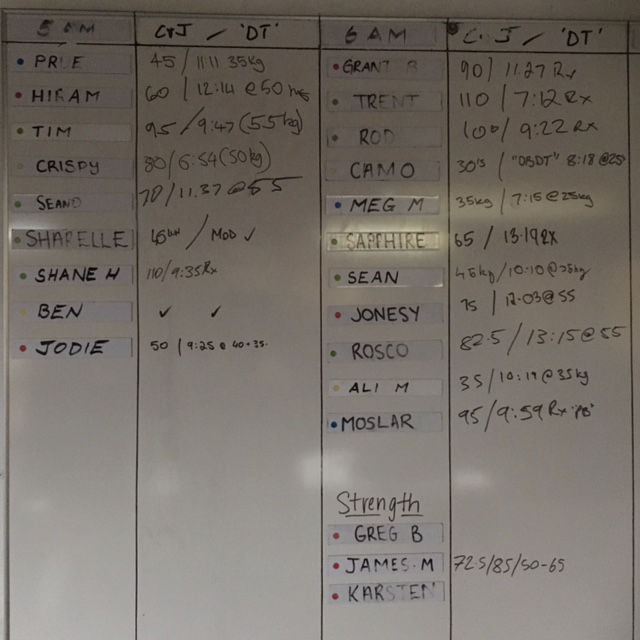 5 AM C+J / 'DT'
45 / 11:11 35kg
HIRAM 60 / 12:14 @ 50
TIM 95 / 9:47 (55kg)
CRISPY 80 / 6:54 (50kg)
SEANO 70 / 11.37 @ 55
SHARELLE / MOD ✓
SHANE H 110 / 9:35 Rx
BEN ✓ ✓
JODIE 50 / 9:25 @ 40-35.
6 AM C+J / 'DT'
GRANT 90 / 11.27 Rx
TRENT 110 / 7:12 Rx
ROD 100 / 9:22 Rx
CAMO 30's / "DBDT" 8:18 @25
MEG M 35kg / 7:15 @ 25kg
SAPPHIRE 65 / 13.19 RX
SEAN 45kg / 10:10 @ 35kg
JONESY 75 / 12.03 @ 55
ROSCO 82.5 / 13:15 @ 55
ALI M 35 / 10:19 @ 35kg
MOSLAR 95 / 9:59 Rx 'PB'
Strength
GREG B
JAMES.M 72.5/85/50-65
KARSTEN